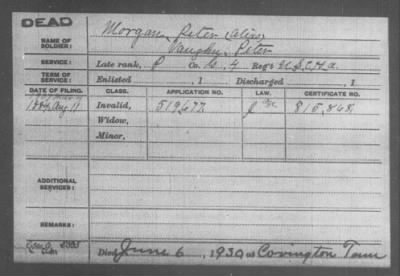 DEAD
NAME OF SOLDIER: Morgan, Peter (alias)
Vaughn, Peter
SERVICE: Late rank, P Co. G, 4 Reg't U.S.C.H.A.
TERM OF SERVICE: Enlisted , 1 Discharged , 1
DATE OF FILING. CLASS. APPLICATION NO. LAW. CERTIFICATE NO.
Aug 11 Invalid, 519677 815,848
Widow,
Minor,
ADDITIONAL SERVICES:
REMARKS:
Died June 6, 1930, at Covington Tenn